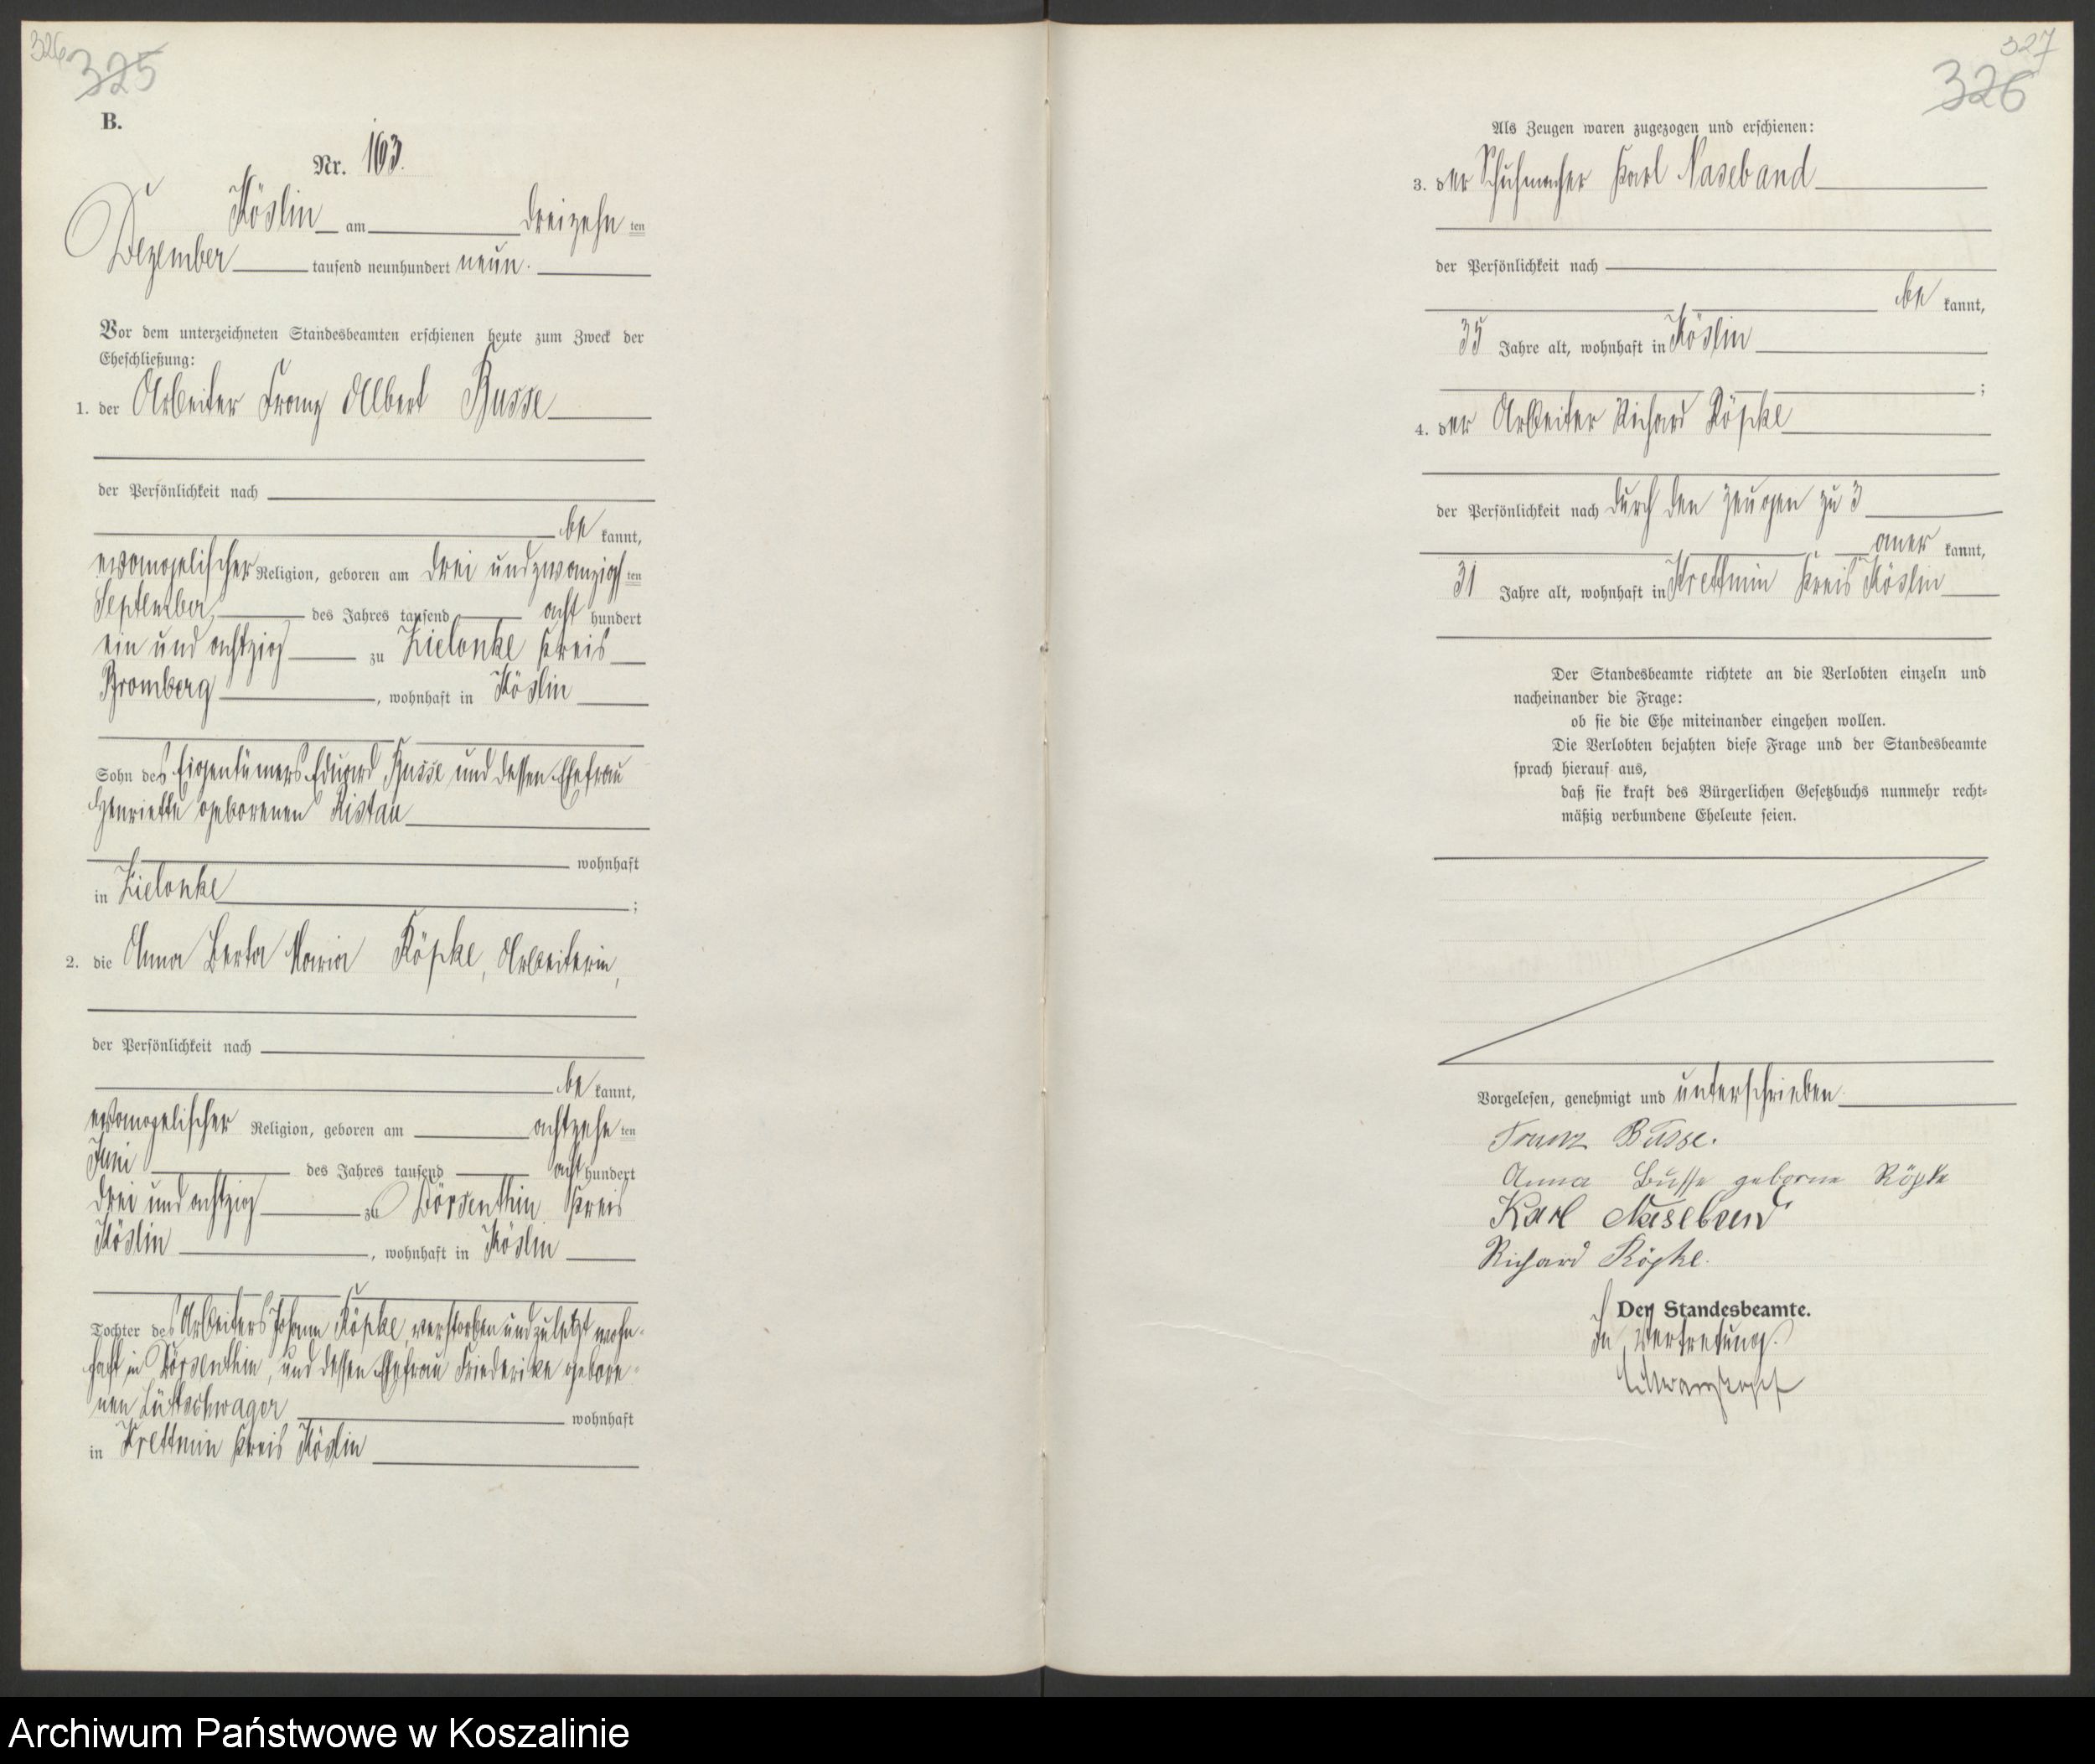 326
325
B.
Nr. 163.
Köslin am dreizehn ten
Dezember tausend neunhundert neun.
Vor dem unterzeichneten Standesbeamten erschienen heute zum Zweck der
Eheschließung:
1. der Arbeiter Franz Albert Busse
der Persönlichkeit nach
be kannt,
evangelischer Religion, geboren am drei und zwanzigs ten
September des Jahres tausend acht hundert
ein und achtzig zu Zielonke Kreis
Bromberg, wohnhaft in Köslin
Sohn des Eigentümers Eduard Busse und dessen Ehefrau
Henriette geborenen Ristau
wohnhaft
in Zielonke;
2. die Anna Berta Maria Köpke, Arbeiterin,
der Persönlichkeit nach
be kannt,
evangelischer Religion, geboren am achtzehn ten
Juni des Jahres tausend acht hundert
drei und achtzig zu Dörsenthin Kreis
Köslin, wohnhaft in Köslin
Tochter des Arbeiters Johann Köpke, verstorben und zuletzt wohn-
haft in Dörsenthin, und dessen Ehefrau Friederike gebore-
nen Lüttschwager wohnhaft
in Krettmin Kreis Köslin
327
326
Als Zeugen waren zugezogen und erschienen:
3. der Schuhmacher Karl Naseband
der Persönlichkeit nach
be kannt,
35 Jahre alt, wohnhaft in Köslin
;
4. der Arbeiter Richard Köpke
der Persönlichkeit nach durch den Zeugen zu 3
aner kannt,
31 Jahre alt, wohnhaft in Krettmin Kreis Köslin
Der Standesbeamte richtete an die Verlobten einzeln und
nacheinander die Frage:
ob sie die Ehe miteinander eingehen wollen.
Die Verlobten bejahten diese Frage und der Standesbeamte
sprach hierauf aus,
daß sie kraft des Bürgerlichen Gesetzbuchs nunmehr recht-
mäßig verbundene Eheleute seien.
Vorgelesen, genehmigt und unterschrieben
Franz Busse.
Anna Busse geborne Köpke
Karl Naseband
Richard Köpke.
Der Standesbeamte.
In Vertretung.
Archiwum Państwowe w Koszalinie